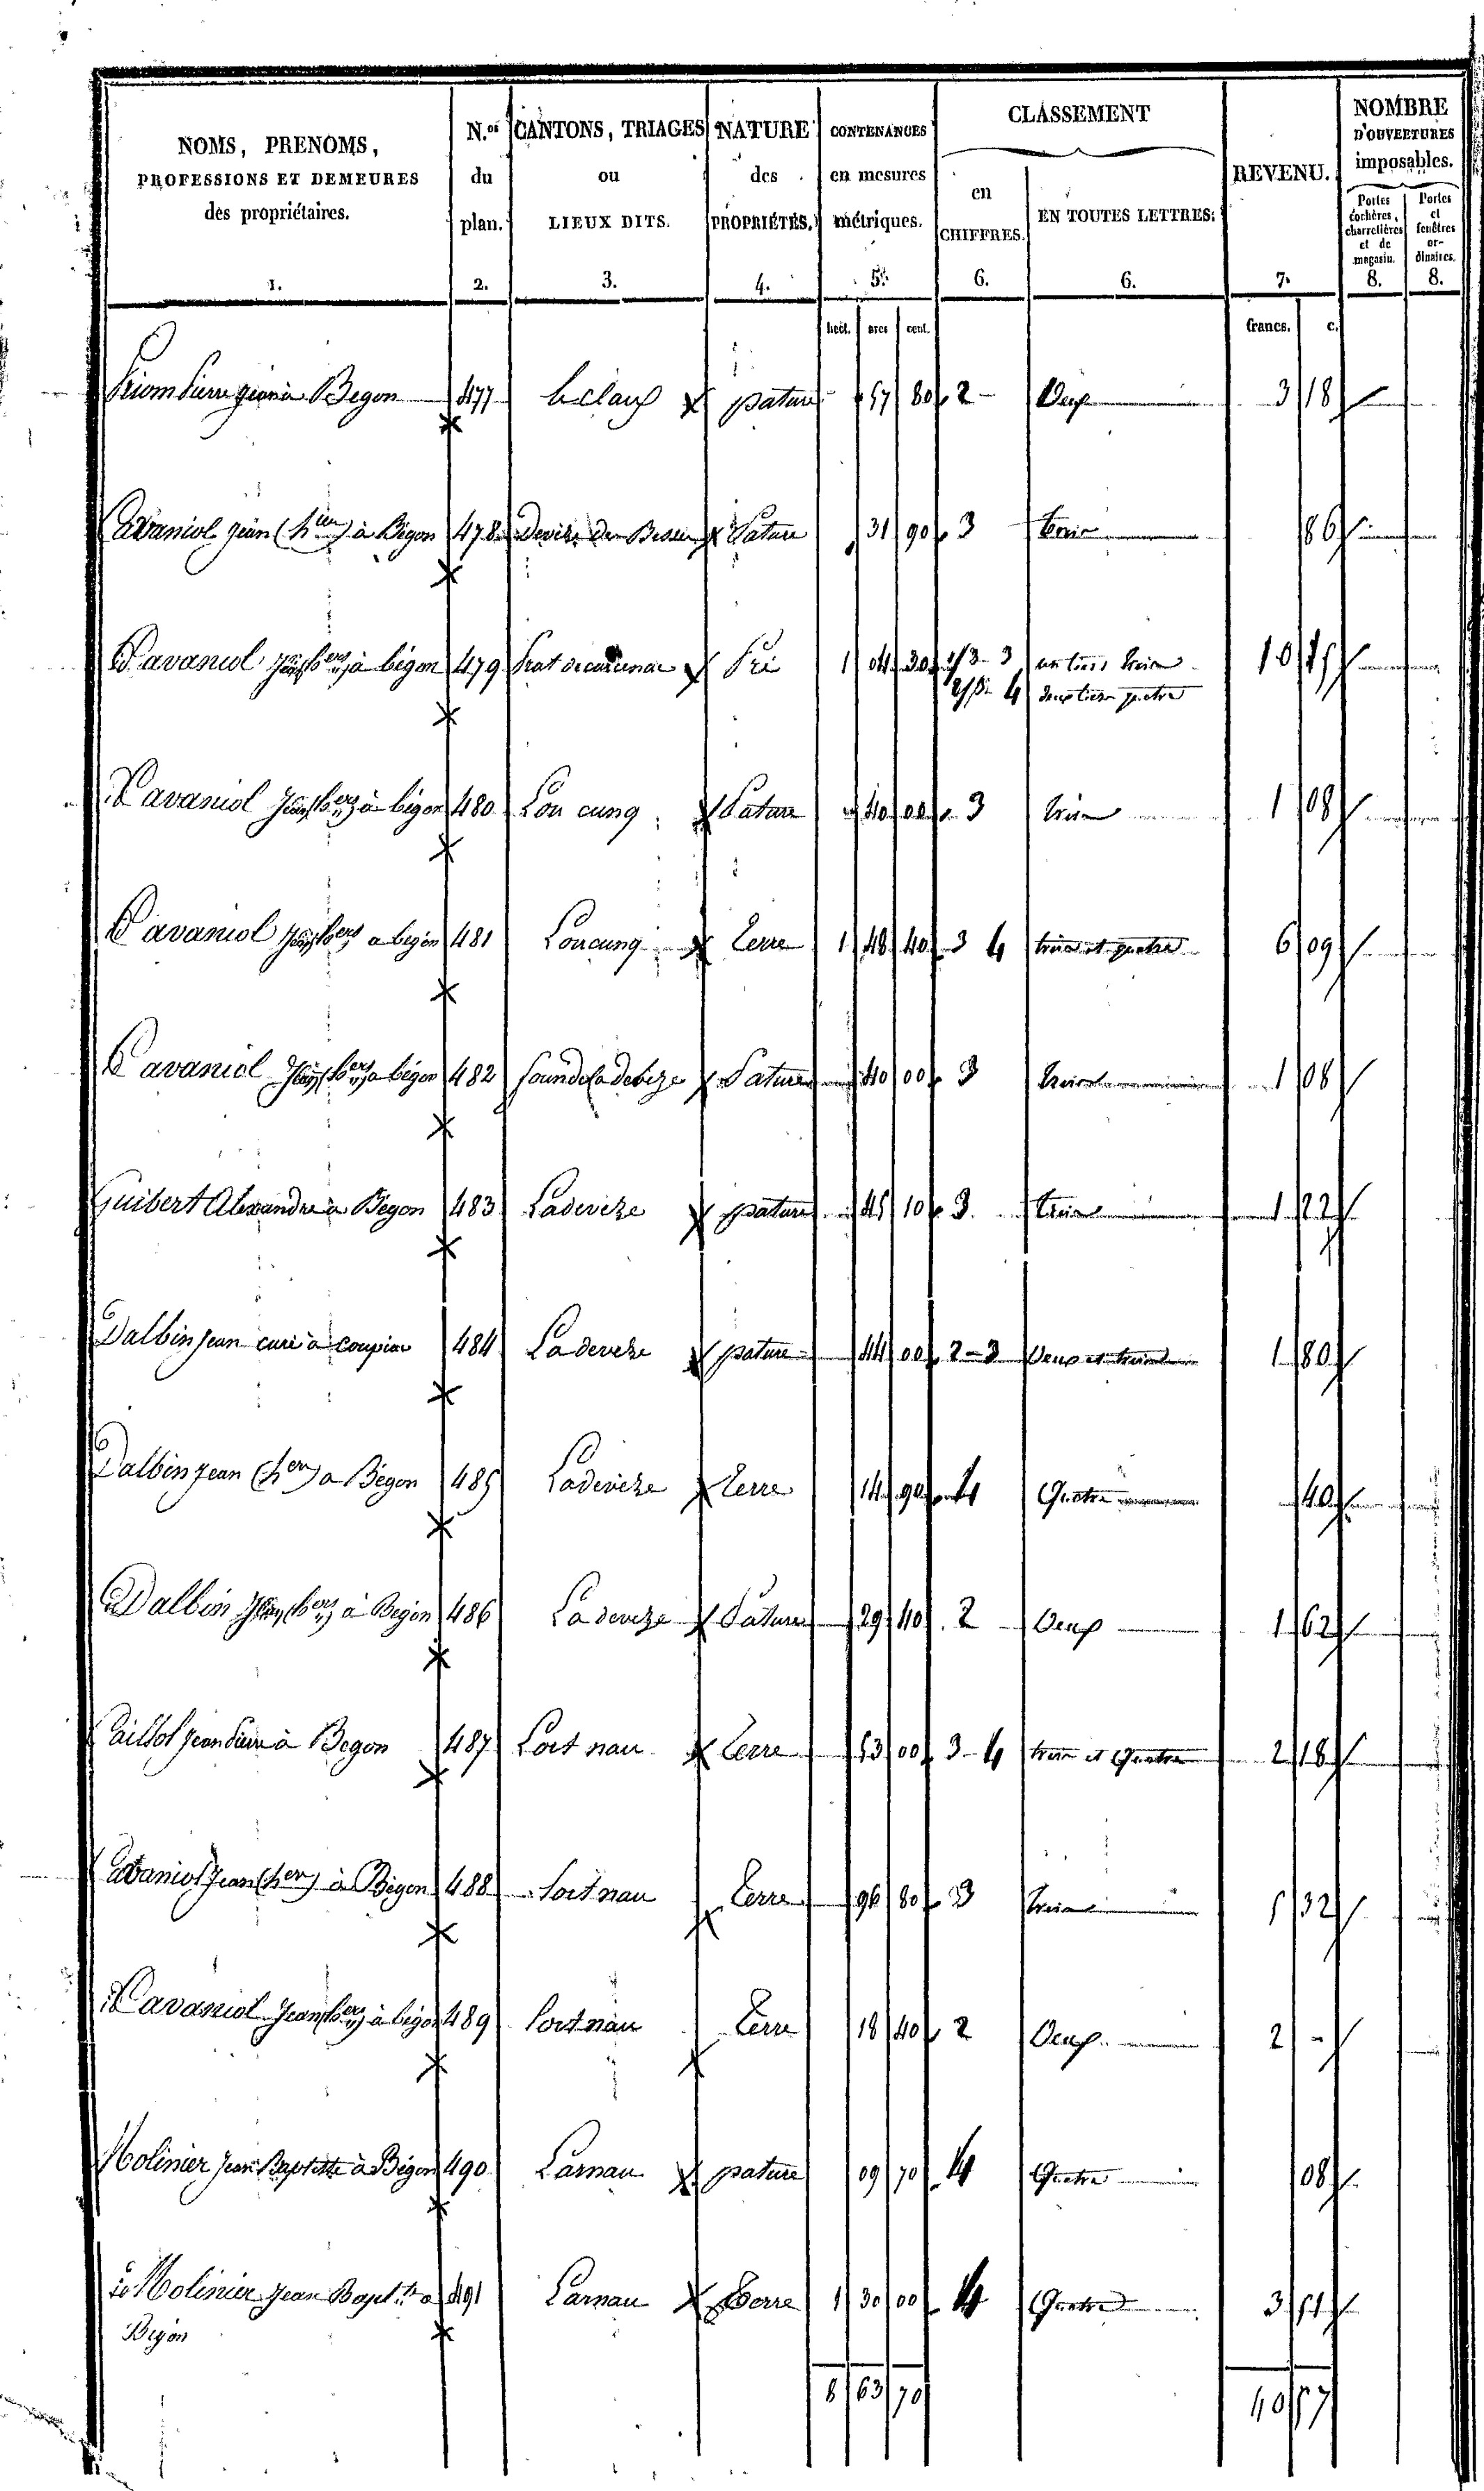 NOMS, PRENOMS, PROFESSIONS ET DEMEURES des propriétaires. 1.
N.os du plan. 2.
CANTONS, TRIAGES ou LIEUX DITS. 3.
NATURE des PROPRIÉTÉS. 4.
CONTENANCES en mesures métriques. 5.
CLASSEMENT
en CHIFFRES. 6.
EN TOUTES LETTRES. 6.
REVENU. 7.
NOMBRE D'OUVERTURES imposables.
Portes cochères, charretières et de magasin. 8.
Portes et fenêtres ordinaires. 8.
hect. ares cent. francs. c.
Pierre à Begon 477 pature 57 80 2 Deux 3 18
Cavaniol jean à Bégon 478 Pature 31 90 3 trois 86
Cavaniol Jean (hers) à bégon 479 Prat Pré 1 04 30 1/3 3 un tiers trois 10
2/3 4 deux tiers quatre
Cavaniol Jean (hers) à bégon 480 Lou cung Pature 40 00 3 trois 1 08
Cavaniol Jean (hers) a begon 481 Loucung Terre 1 48 40 3 4 trois et quatre 6 09
Cavaniol Jean (hers) a bégon 482 Pature 40 00 3 trois 1 08
Guibert Alexandre à Bégon 483 Ladevèze pature 45 10 3 trois 1 22
Dalbin jean curé à coupiac 484 Ladeveze pature 44 00 2-3 Deux et trois 1 80
Dalbin jean (hers) a Bégon 485 Ladevèze Terre 14 90 4 Quatre 40
Dalbin Jean (hers) à Begon 486 Ladeveze Pature 29 40 2 Deux 1 62
jean Pierre à Begon 487 Lort nau Terre 53 00 3-4 trois et Quatre 2 18
Cavaniol Jean (hers) à Bégon 488 Lort nau Terre 96 80 3 trois 5 32
Cavaniol Jean (hers) à bégon 489 Lort nau Terre 18 40 2 Deux 2 -
Molinier Jean Baptiste à Bégon 490 Larnau pature 09 70 4 Quatre 08
Molinier Jean Bapt.te a 491 Larnau Terre 1 30 00 4 Quatre 3 51
Bégon
8 63 70 40 57